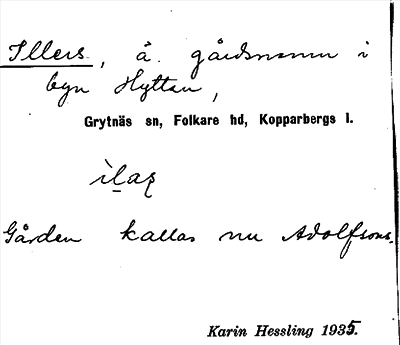 Illers, ä. gårdsnamn i
byn Hyttan,
Grytnäs sn, Folkare hd, Kopparbergs l.
Gården kallas nu Adolfsons.
Karin Hessling 1935.